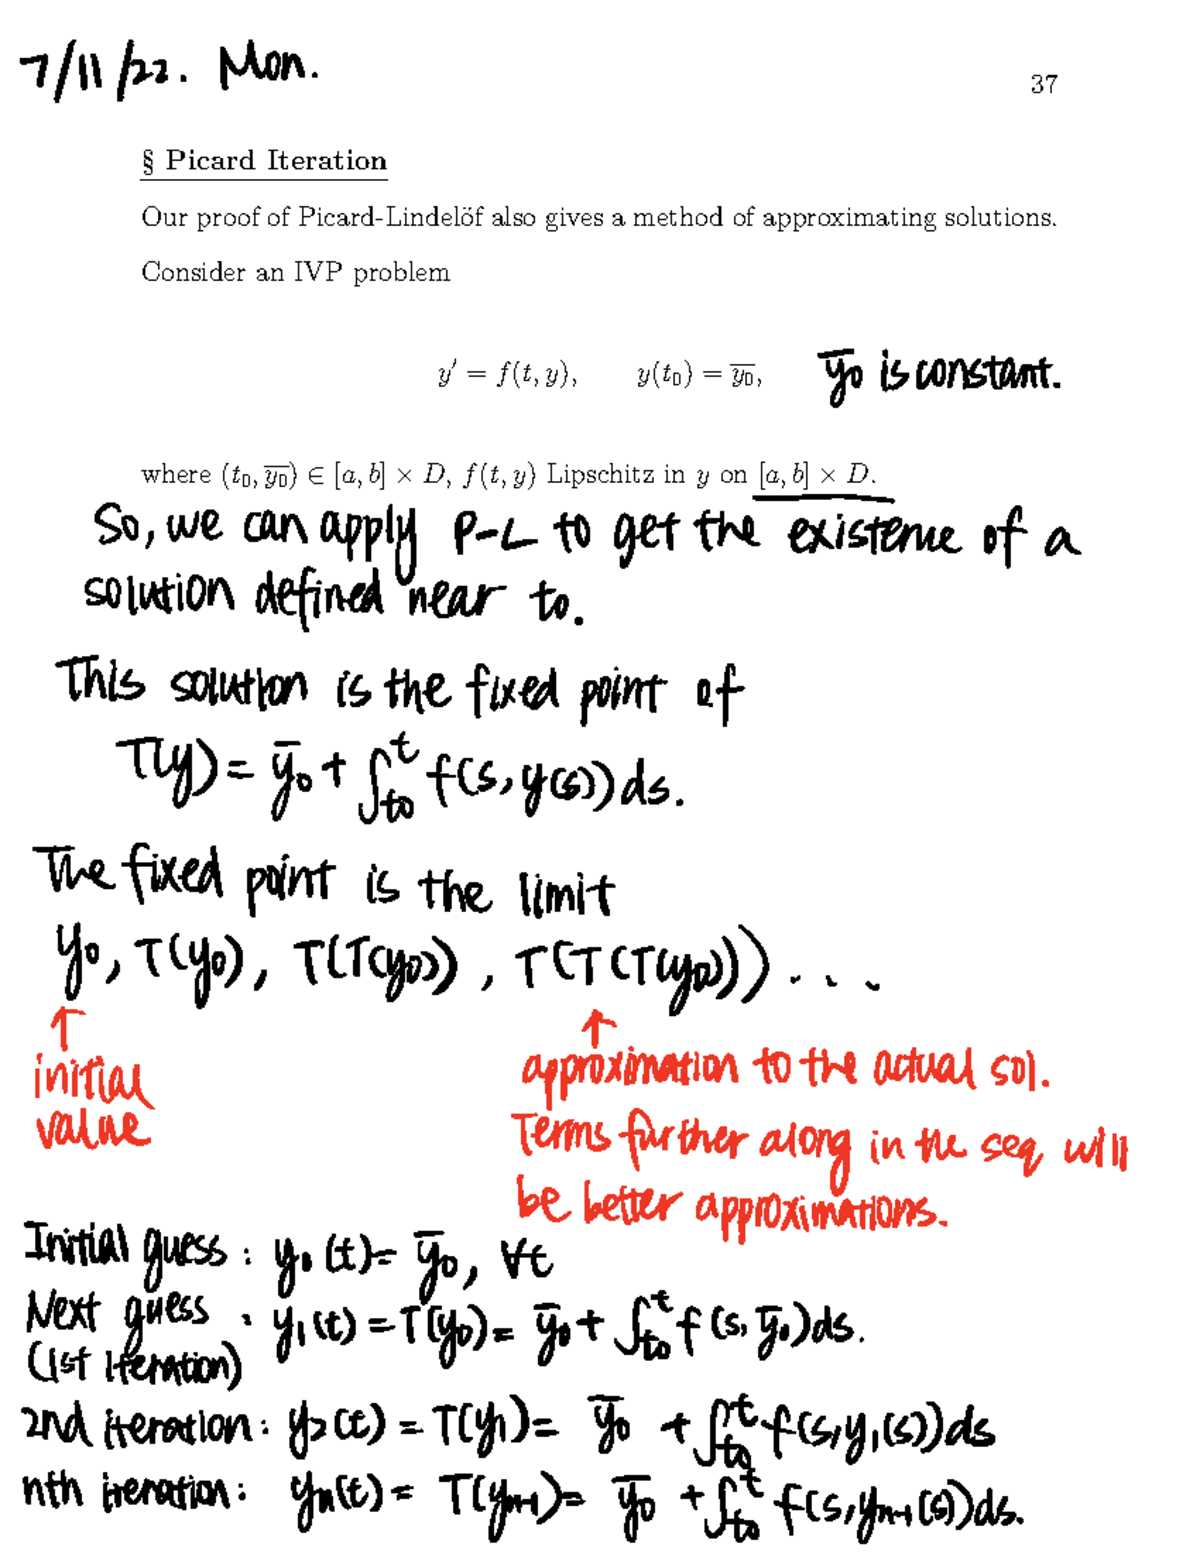 7/11/22. Mon.
37
§ Picard Iteration
Our proof of Picard-Lindelöf also gives a method of approximating solutions.
Consider an IVP problem
y′ = f(t, y), y(t₀) = y̅₀, y̅₀ is constant.
where (t₀, y̅₀) ∈ [a, b] × D, f(t, y) Lipschitz in y on [a, b] × D.
So, we can apply P-L to get the existence of a
solution defined near to.
This solution is the fixed point of
T(y) = y̅₀ + ∫ₜ₀ᵗ f(s, y(s)) ds.
The fixed point is the limit
y₀, T(y₀), T(T(y₀)), T(T(T(y₀))) . . .
↑ ↑
initial approximation to the actual sol.
value Terms further along in the seq will
be better approximations.
Initial guess: y₀(t) = y̅₀, ∀t
Next guess: y₁(t) = T(y₀) = y̅₀ + ∫ₜ₀ᵗ f(s, y̅₀) ds.
(1st Iteration)
2nd iteration: y₂(t) = T(y₁) = y̅₀ + ∫ₜ₀ᵗ f(s, y₁(s)) ds
nth iteration: yₙ(t) = T(yₙ₋₁) = y̅₀ + ∫ₜ₀ᵗ f(s, yₙ₋₁(s)) ds.